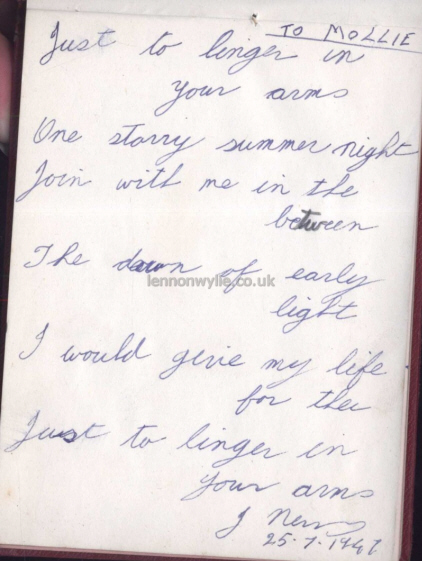 TO MOLLIE
Just to linger in
your arms
One starry summer night
Join with me in the
between
The dawn of early
lennonwylie.co.uk
light
I would give my life
for thee
Just to linger in
your arms
J
25.7.1947